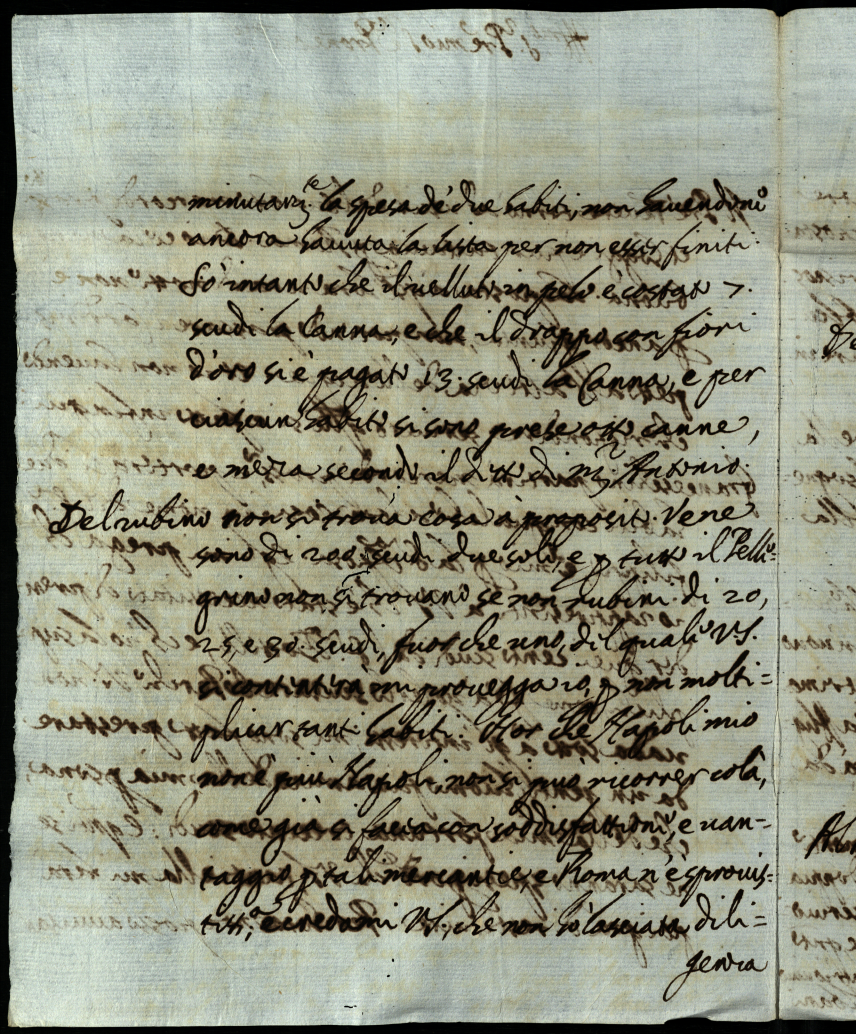 minutam.te la spesa de' due habiti, non havendomi
ancora havuta la lista per non esser finiti.
Sò intanto che il velluto in pelo è costato 7.
scudi la Canna, e che il drappo con fiori
d'oro si è pagato 13. scudi la Canna, e per
ciascun habito si sono prese otto canne,
e meza secondo il ditto di m.r Antonio.
Del rubino non si trova cosa à proposito. Vene
sono di 200 scudi due soli, e p tutto il Pelli=
grino non si trovano se non rubini di 20,
25, e 30. scudi, fuor che uno, del quale VS.
si contentirà mi provegga io, p non molti=
plicar tanti habiti. Hor che Napoli mio
non è più Napoli, non si può ricorrer colà,
come già si facea con soddisfattione, e van=
taggio p tali mercantie, e Roma n'è sprovis=
tiss.a e credami VS., che non hò lasciata dili=
genza